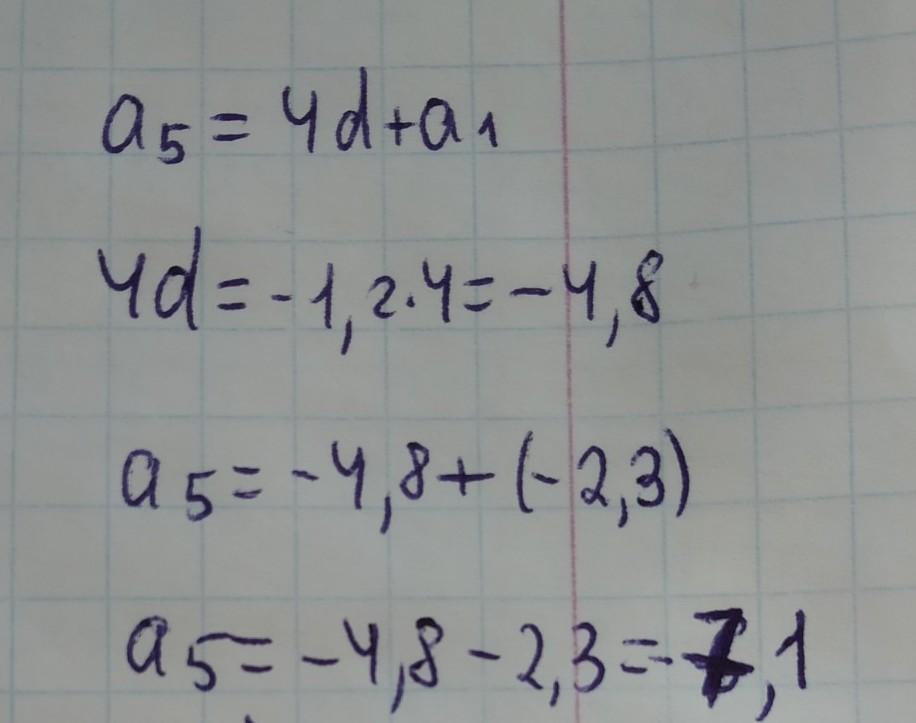 a₅ = 4d + a₁
4d = -1,2·4 = -4,8
a₅ = -4,8 + (-2,3)
a₅ = -4,8 - 2,3 = -7,1